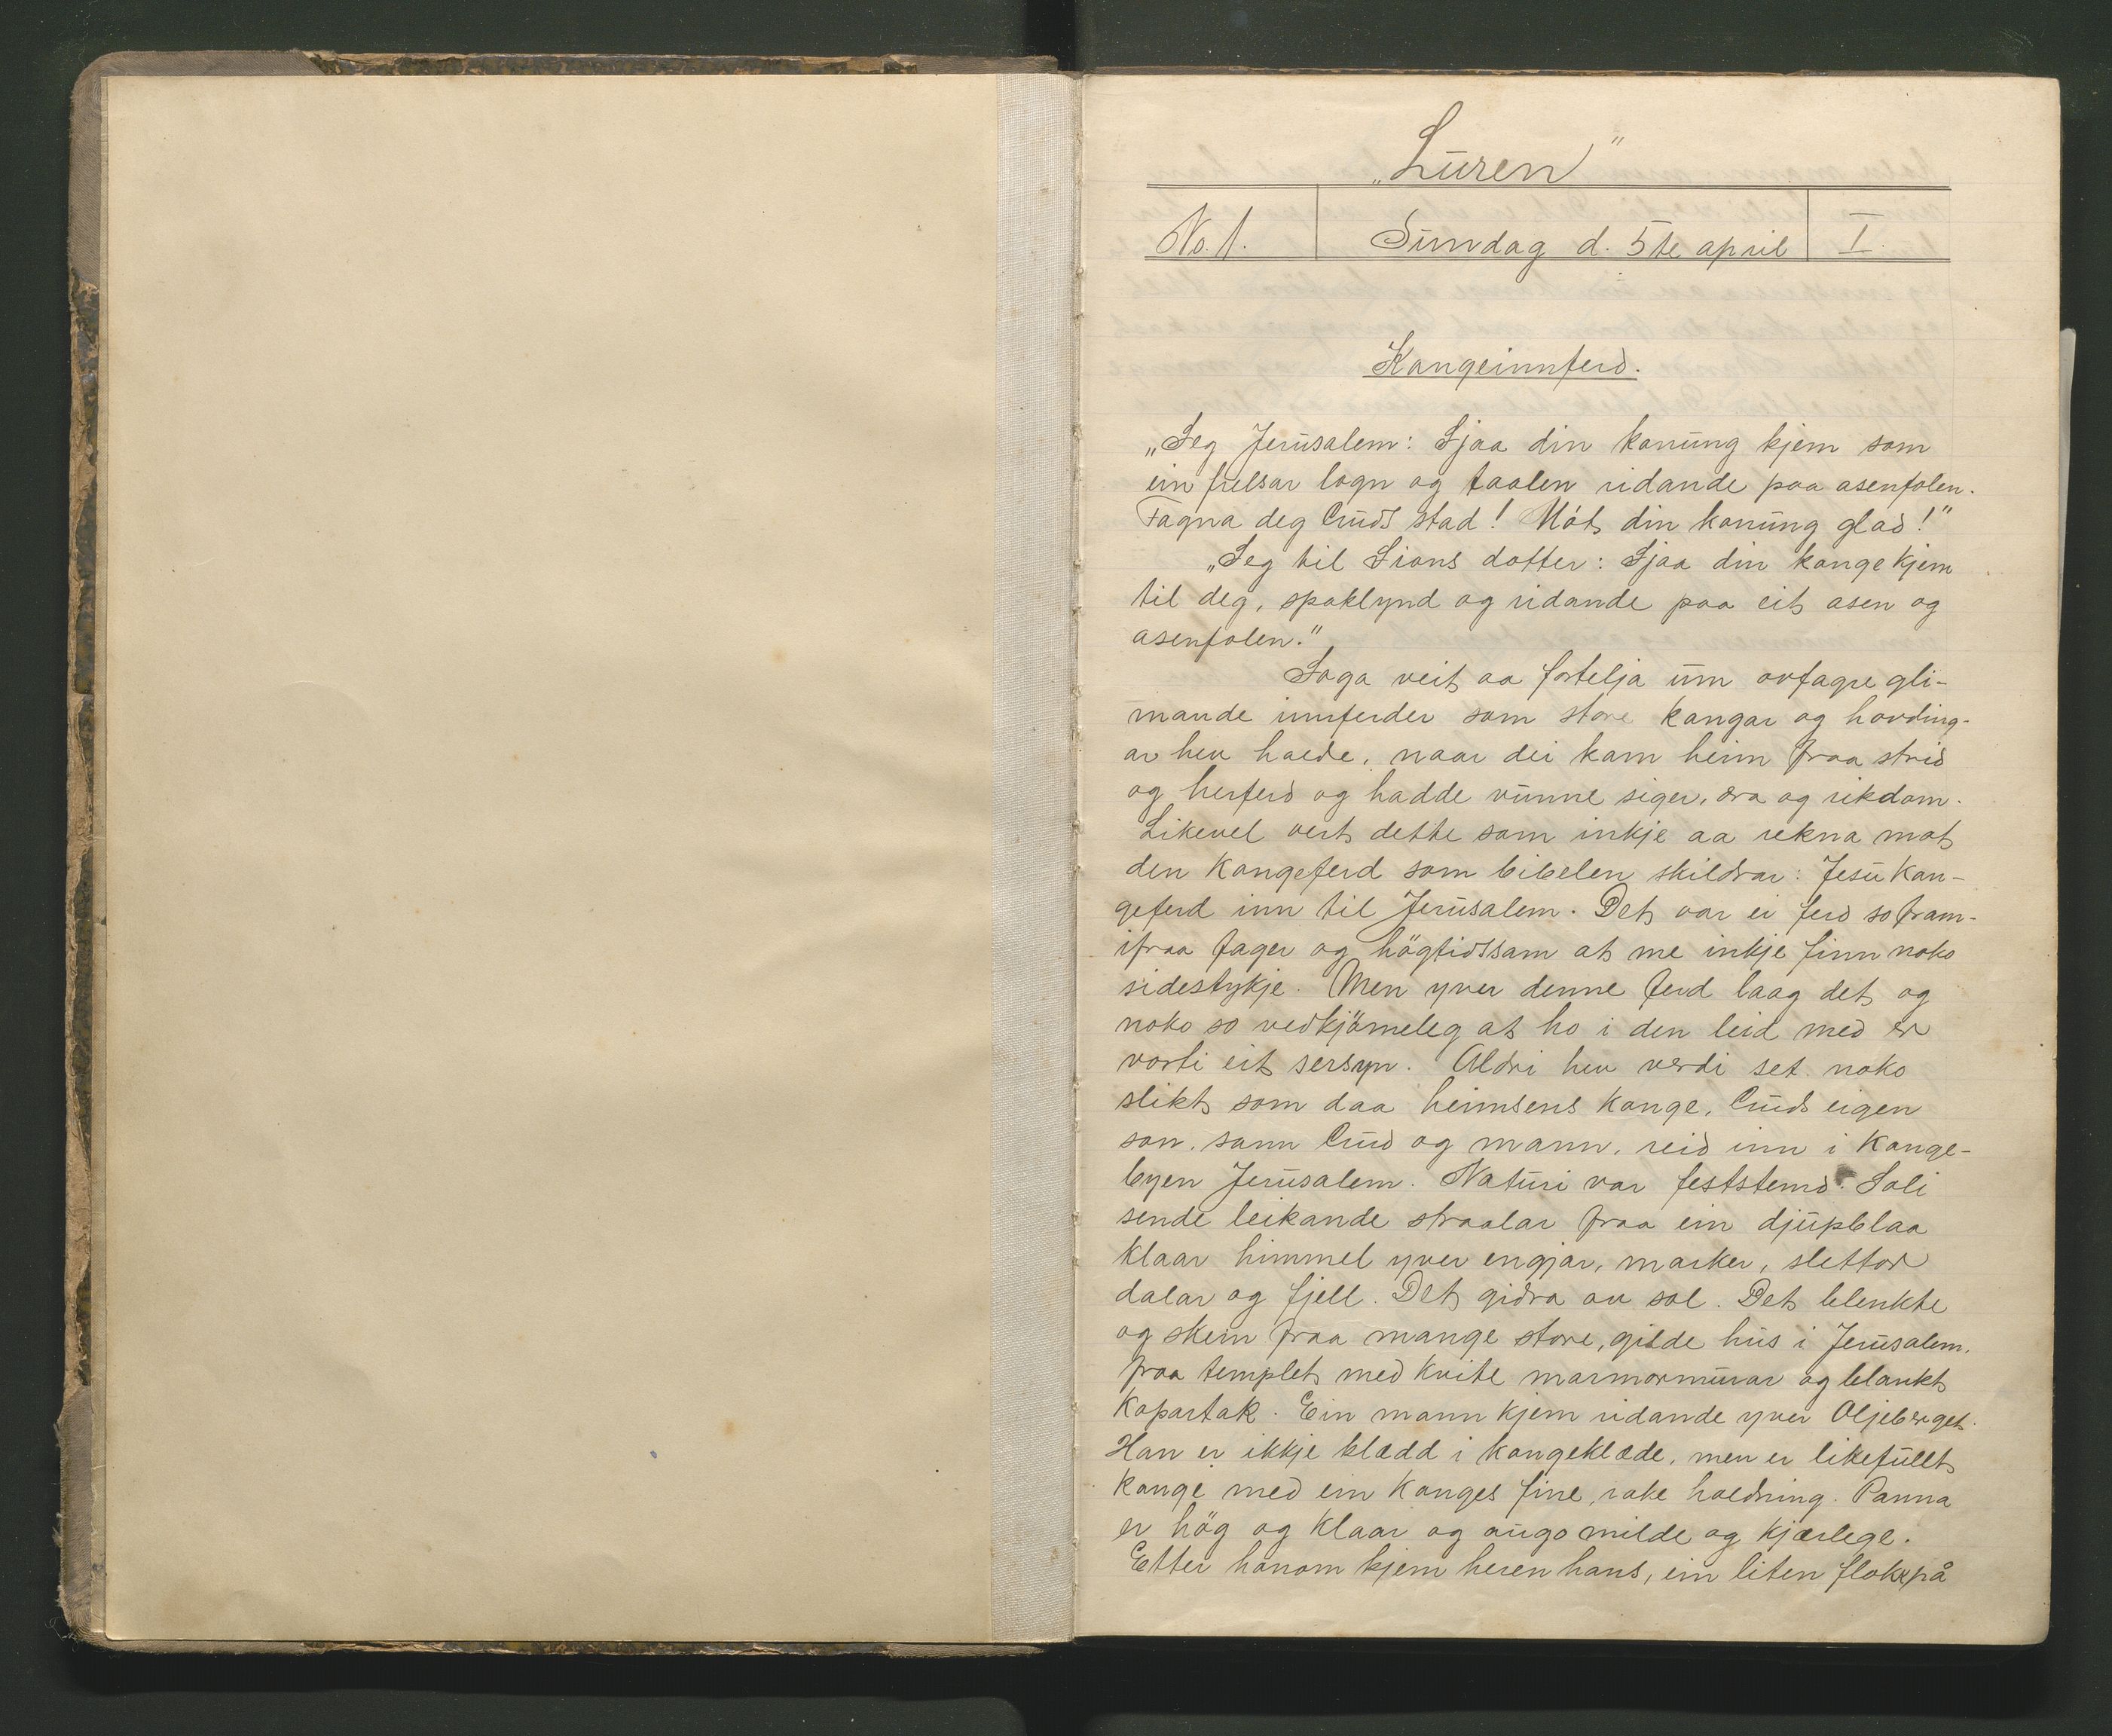 „Luren"
No. 1. Sundag d. 5te april I.
Kongeinnferd.
„Seg Jerusalem: Sjaa din konung kjem som
ein frelsar logn og taolen ridande paa asenfolen.
Fagna deg Guds stad! Møt din konung glad!"
„Seg til Sions dotter: Sjaa din konge kjem
til deg, spaklynd og ridande paa eit asen og
asenfolen."
Soga veit aa fortelja um ovfagre gli-
mande innferder som store kongar og hovding-
ar hev havde, naar dei kom heim fraa strid
og herferd og hadde vunne siger, æra og rikdom.
Likevel vert dette som inkje aa rekna mot
den kongeferd som bibelen skildrar: Jesu kon-
geferd inn til Jerusalem. Det var ei ferd so fram-
ifraa fager og högtidssam at me inkje finn noko
sidestykje. Men yver denne ferd laag det og
noko so vedkjömeleg at ho i den leid med er
vorti eit sersyn. Aldri hev verdi set noko
slikt som daa heimsens konge, Guds eigen
son, sann Gud og mann, reid inn i konge-
byen Jerusalem. Naturi var feststemd. Soli
sende leikande straalar fraa ein djupblaa
klaar himmel yver engjar, marker, slettor
dalar og fjell. Det gidra av sol. Det blenkte
og skein fraa mange store, gilde hus i Jerusalem,
fraa templet med kvite marmormurar og blankt
kopartak. Ein mann kjem ridande yver Oljeberget.
Han er ikkje klædd i kongeklæde, men er likefullt
konge med ein konges fine, rake holdning. Panna
er hög og klaar og augo milde og kjærlege.
Etter honom kjem heren hans, ein liten flokk på